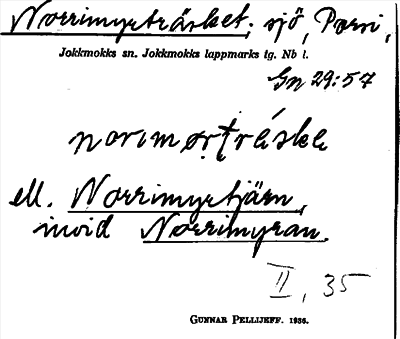 Norrimyrträsket, sjö, Porsi,
Jokkmokks sn. Jokkmokks lappmarks tg. Nb l.
Gn 29:57
norimọrtrẹ́ska
ell. Norrimyrtjärn,
invid Norrimyran.
II, 35
GUNNAR PELLIJEFF. 1936.